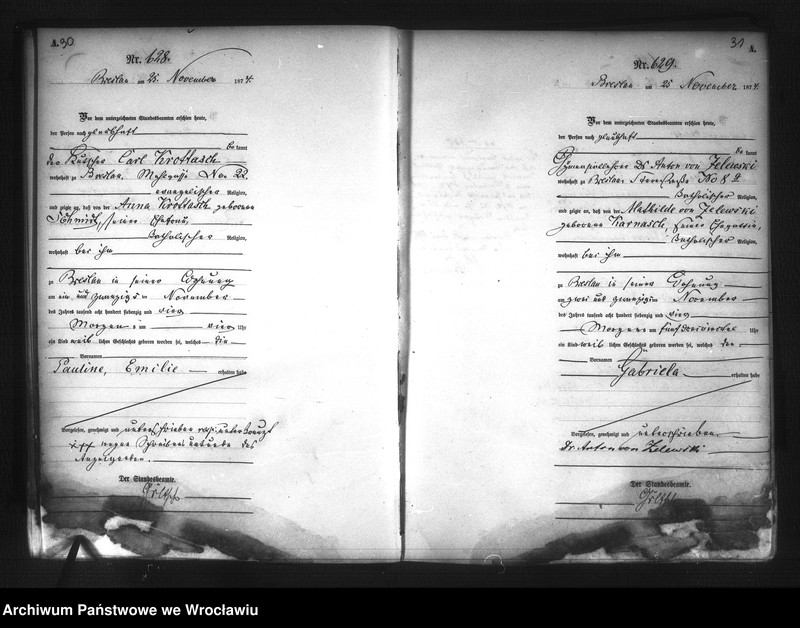 A. 30
Nr. 628.
Breslau am 25. November 1874.
Vor dem unterzeichneten Standesbeamten erschien heute,
der Person nach
bekannt
der Kutscher Carl Krottasch
wohnhaft zu Breslau, No. 22
evangelischer Religion,
und zeigte an, daß von der Anna Krottasch geborene
Schmidt, seiner Ehefrau,
katholischer Religion,
wohnhaft bei ihm
zu Breslau in seiner Wohnung
am ein und zwanzigsten November
des Jahres tausend acht hundert siebenzig und vier
Morgens um vier Uhr
ein Kind weiblichen Geschlechts geboren worden sei, welches die
Vornamen
Pauline, Emilie erhalten habe
Vorgelesen, genehmigt und unterschrieben resp. unterkreuzt
wegen Schreibensunkunde des
Anzeigenden.
Der Standesbeamte.
31 A.
Nr. 629.
Breslau am 25 November 1874.
Vor dem unterzeichneten Standesbeamten erschien heute,
der Person nach glaubhaft
bekannt
Dr Anton von Zelewski
wohnhaft zu Breslau, No 8
katholischer Religion,
und zeigte an, daß von der Mathilde von Zelewski
geborenen Karnasch, seiner Ehegattin,
katholischer Religion,
wohnhaft bei ihm
zu Breslau in seiner Wohnung
am zwei und zwanzigsten November
des Jahres tausend acht hundert siebenzig und vier
Morgens um fünf Uhr
ein Kind weiblichen Geschlechts geboren worden sei, welches den
Vornamen
Gabriela erhalten habe
Vorgelesen, genehmigt und unterschrieben.
Dr. Anton von Zelewski
Der Standesbeamte.
Archiwum Państwowe we Wrocławiu